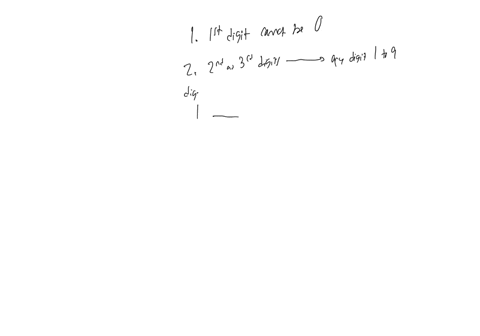 1. 1st digit cannot be 0
2. 2nd 3rd digits → any digit 1 to 9
dig
1 __